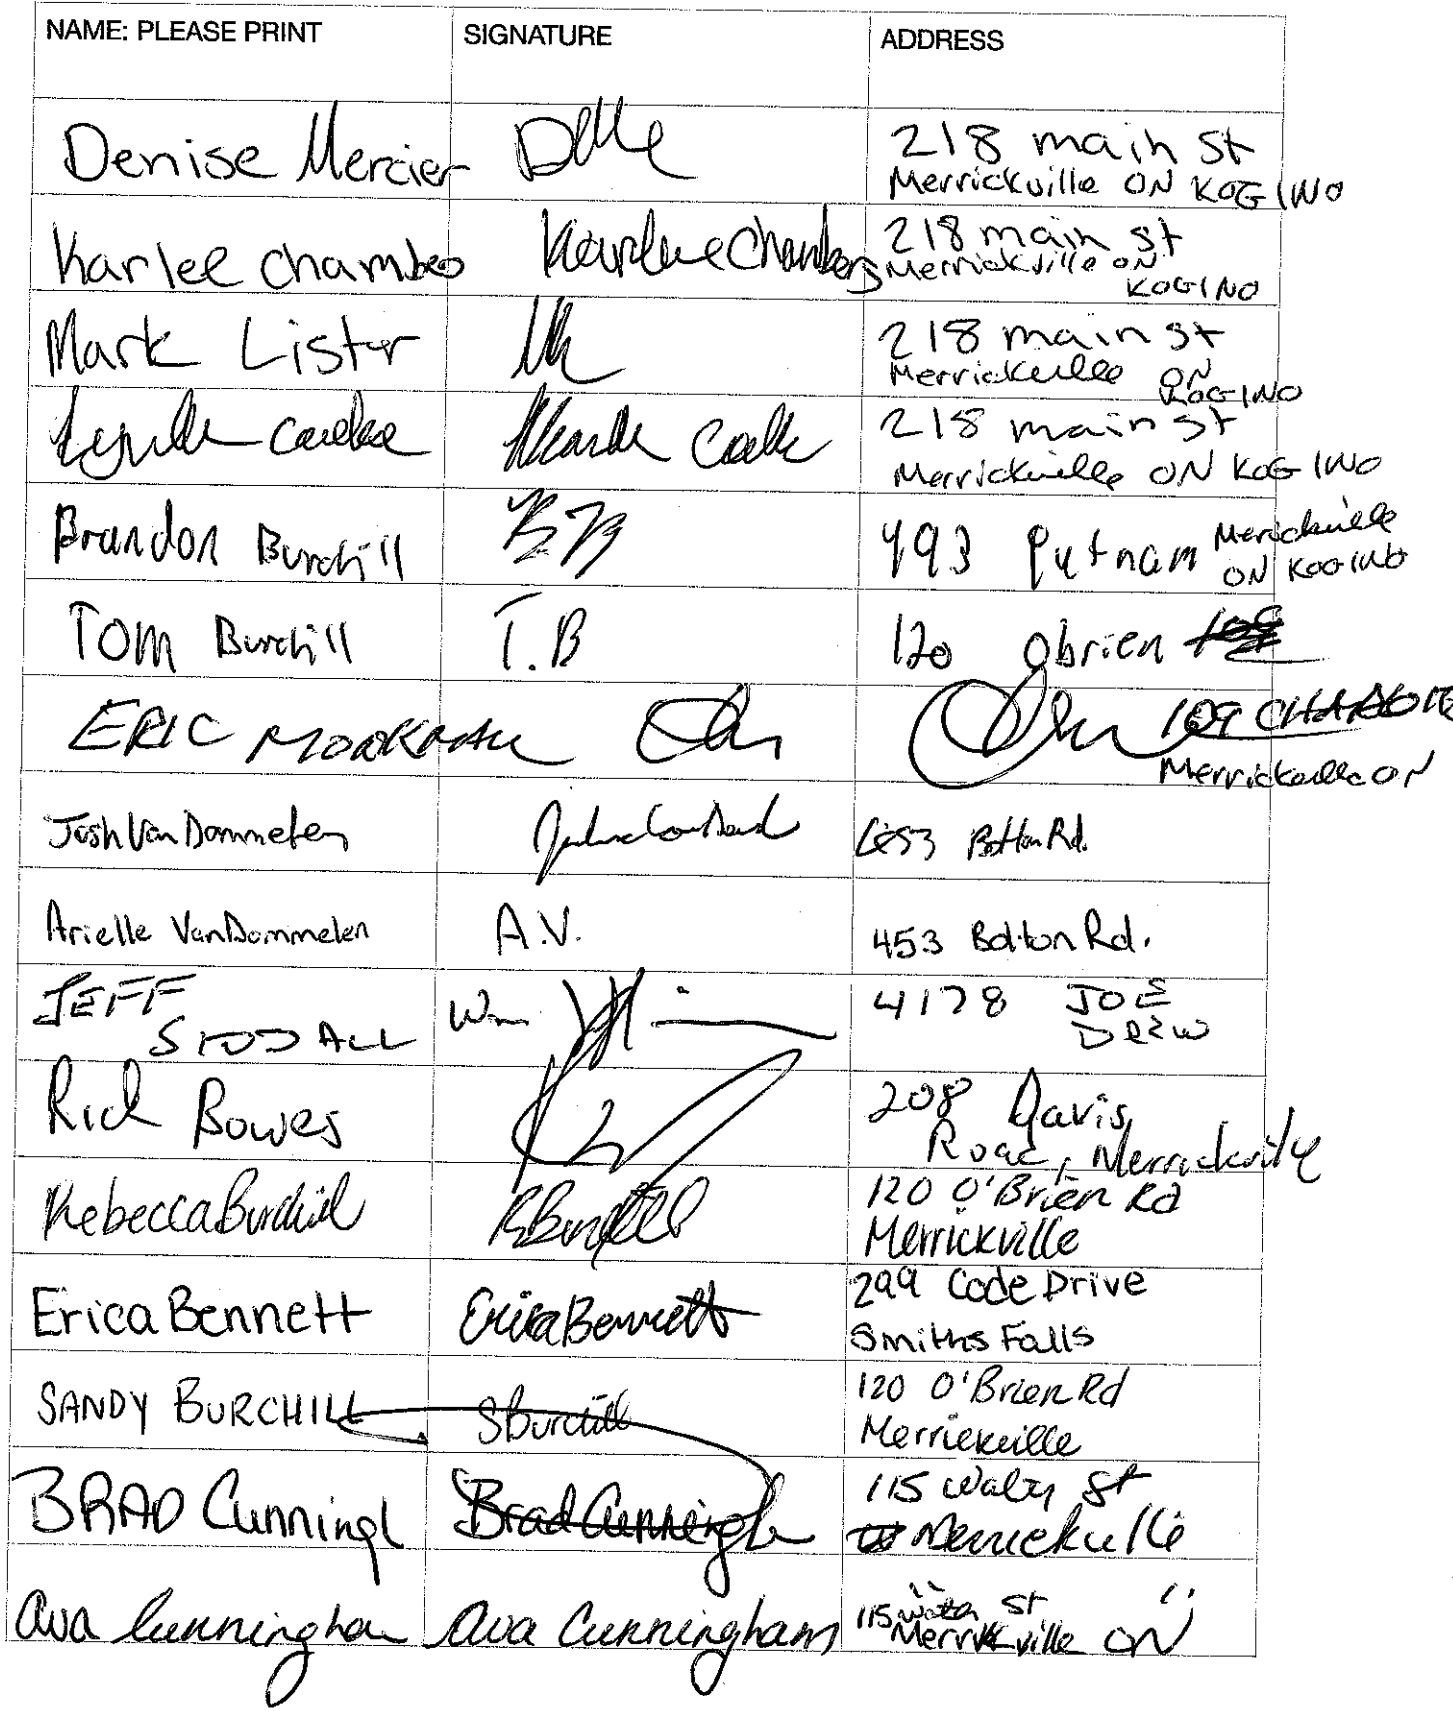 NAME: PLEASE PRINT SIGNATURE ADDRESS
Denise Mercier 218 main st
Merrickville ON K0G 1N0
Karlee Chambers Karlee Chambers 218 main st
Merrickville ON
K0G1N0
Mark Lister 218 main st
Merrickville ON
K0G1N0
218 main st
Merrickville ON K0G 1N0
Brandon Burchill 493 Putnam Merrickville
ON K0G 1N0
TOM Burchill T.B 120 Obrien
ERIC 109
Merrickville ON
Josh Van Dommelen Rd.
Arielle VanDommelen A.V. 453 Bolton Rd.
JEFF 4178 JOE
SIDDALL DREW
Rich Bowes 208 Davis
Road, Merrickville
Rebecca Burchill RBurchill 120 O'Brien Rd
Merrickville
Erica Bennett Erica Bennett 299 Code Drive
Smiths Falls
SANDY BURCHILL SBurchill 120 O'Brien Rd
Merrickville
BRAD Cunningh Brad Cunningh 115 Water St
Merrickville
ava Cunningham ava Cunningham 115 Water St
Merrickville ON